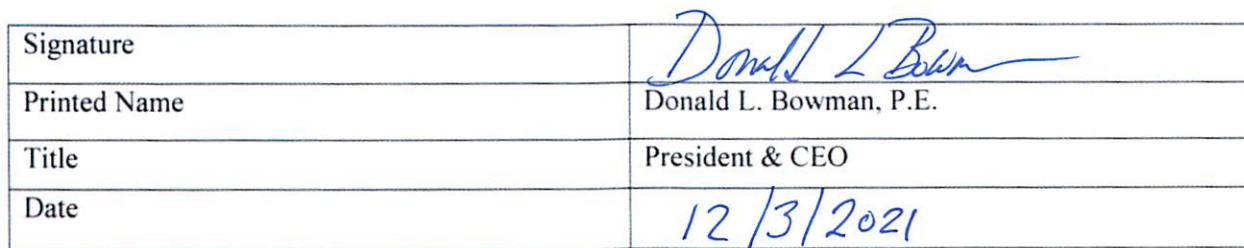 Signature Donald L Bowman
Printed Name Donald L. Bowman, P.E.
Title President & CEO
Date 12/3/2021